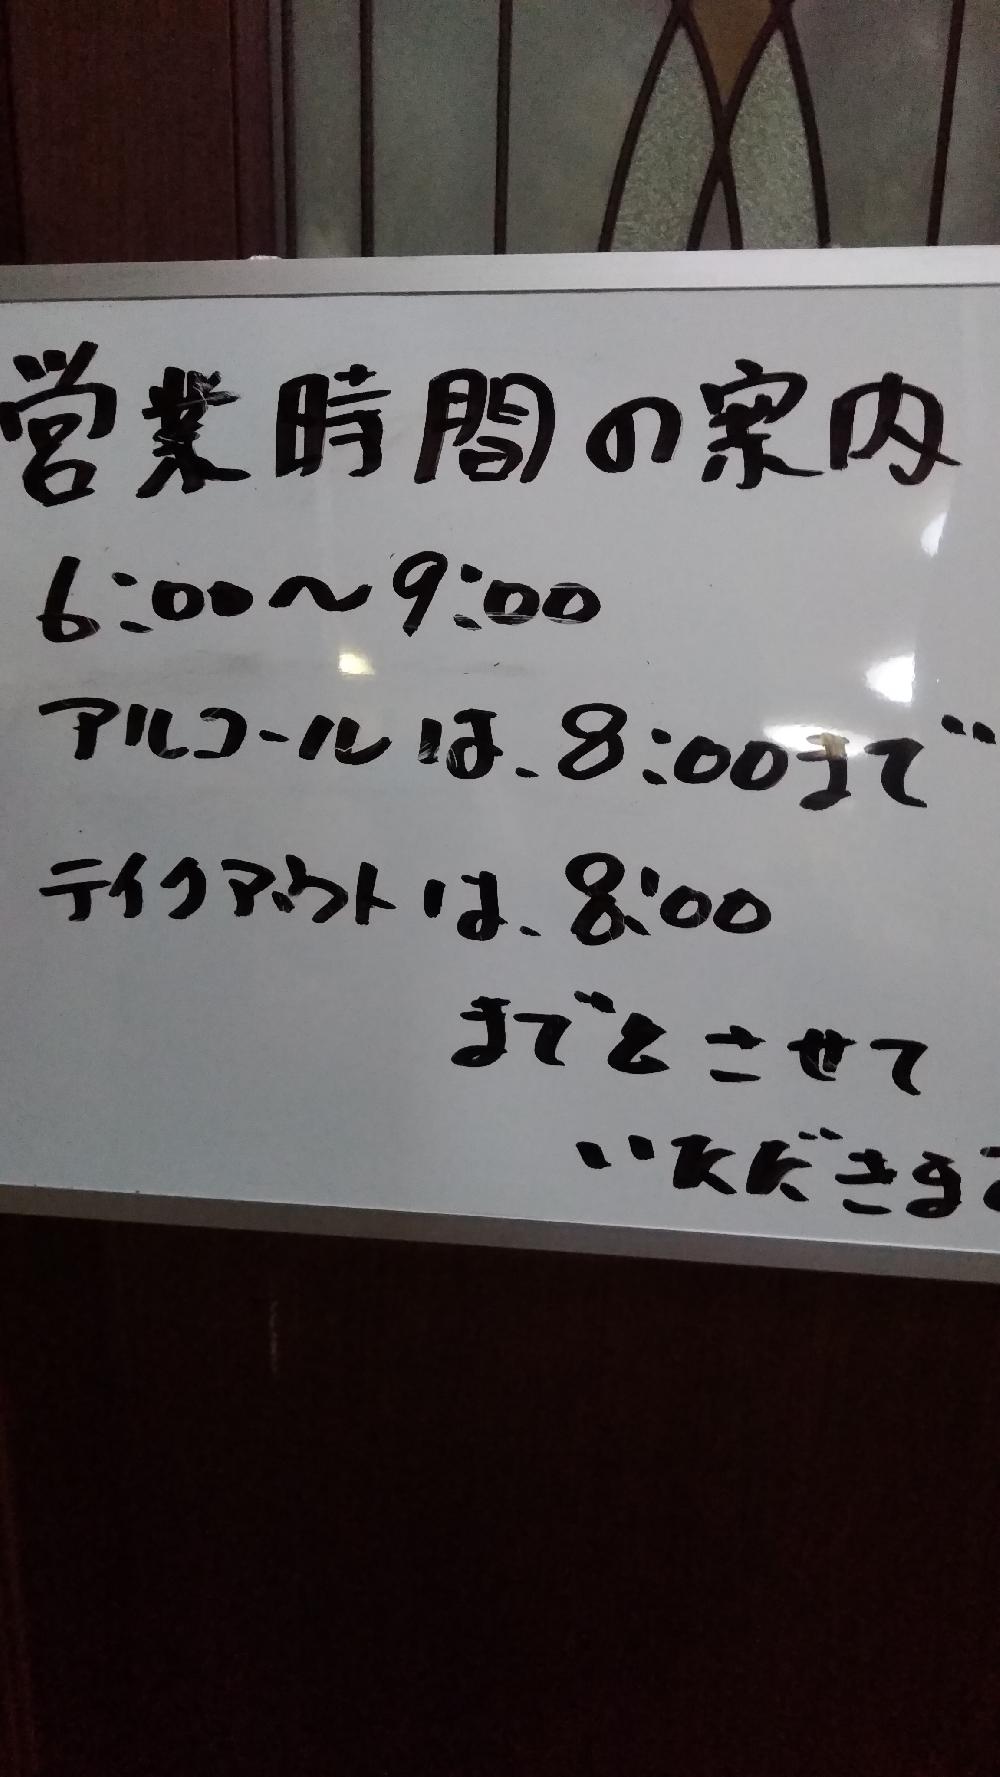 営業時間の案内
6:00〜9:00
アルコールは、8:00まで
テイクアウトは、8:00
までとさせて
いただきます